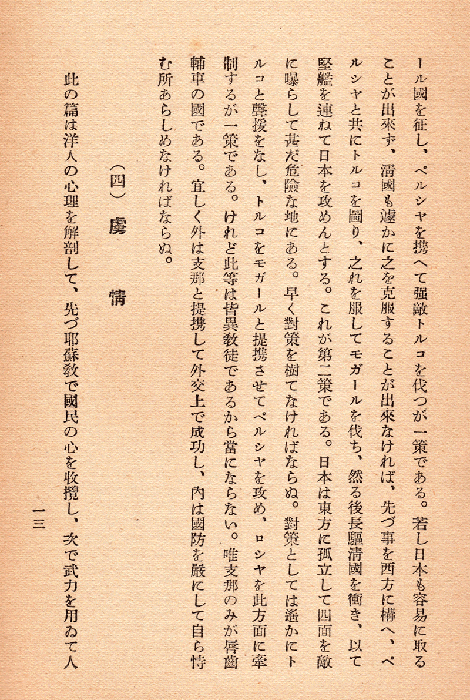 ール國を征し、ペルシヤを携へて强敵トルコを伐つが一策である。若し日本も容易に取る
ことが出來ず、淸國も遽かに之を克服することが出來なければ、先づ事を西方に構へ、ペ
ルシヤと共にトルコを圖り、之れを服してモガールを伐ち、然る後長驅淸國を衝き、以て
堅艦を連ねて日本を攻めんとする。これが第二策である。日本は東方に孤立して四面を敵
に曝らして甚だ危險な地にある。早く對策を樹てなければならぬ。對策としては遙かにト
ルコと聲援をなし、トルコをモガールと提携させてペルシヤを攻め、ロシヤを此方面に牽
制するが一策である。けれど此等は皆異敎徒であるから當にならない。唯支那のみが唇齒
輔車の國である。宜しく外は支那と提携して外交上で成功し、內は國防を嚴にして自ら恃
む所あらしめなければならぬ。
(四) 虜情
此の篇は洋人の心理を解剖して、先づ耶蘇敎で國民の心を收攬し、次で武力を用ゐて人
一三